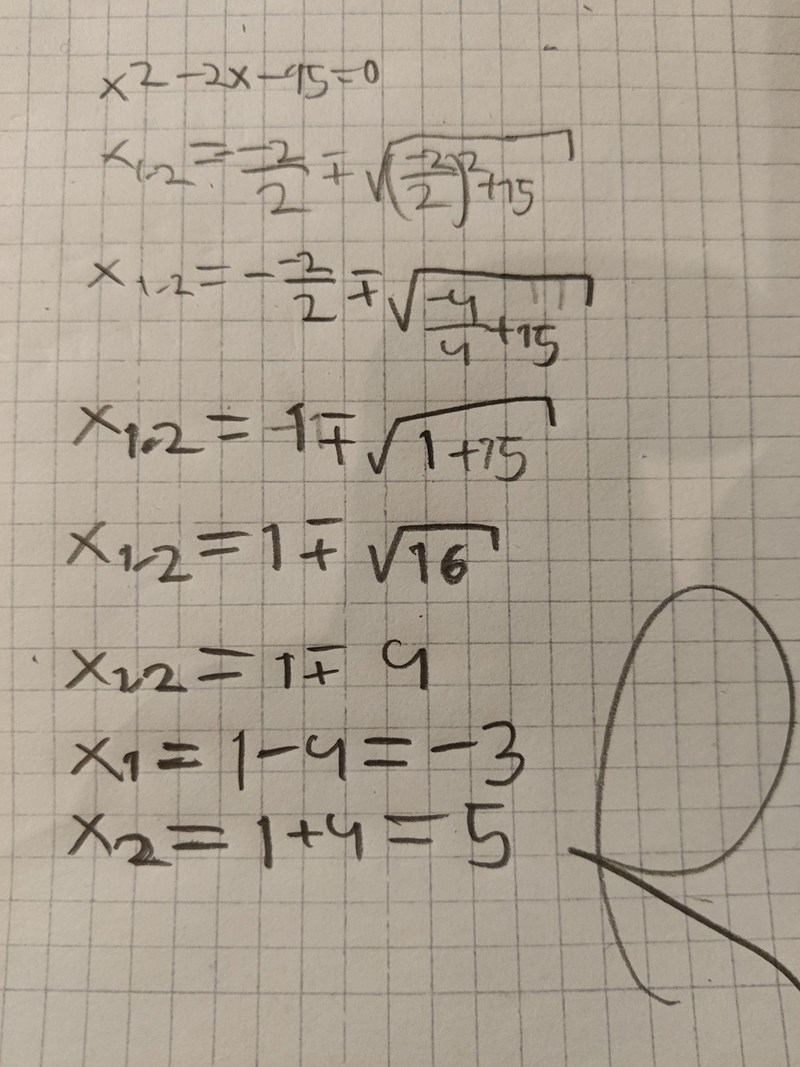 x² -2x -15=0
x₁.₂ = -2/2 ∓ √((-2/2)² +15)
x₁.₂ = - -2/2 ∓ √(-4/4 +15)
x₁.₂ = -1 ∓ √(1+15)
x₁.₂ = 1 ∓ √16
x₁,₂ = 1 ∓ 4
x₁ = 1-4 = -3
x₂ = 1+4 = 5